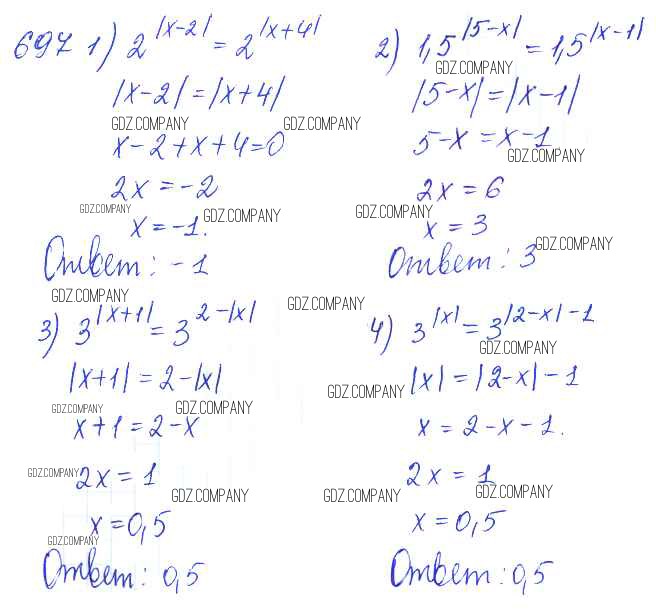 697 1) 2^|x-2| = 2^|x+4|
|x-2| = |x+4|
GDZ.COMPANY GDZ.COMPANY
x-2+x+4=0
2x = -2
GDZ.COMPANY GDZ.COMPANY
x = -1.
Ответ: -1
GDZ.COMPANY
2) 1,5^|5-x| = 1,5^|x-1|
GDZ.COMPANY
|5-x| = |x-1|
5-x = x-1
GDZ.COMPANY
2x = 6
GDZ.COMPANY
x = 3
GDZ.COMPANY
Ответ: 3
GDZ.COMPANY
3) 3^|x+1| = 3^2-|x|
|x+1| = 2-|x|
GDZ.COMPANY GDZ.COMPANY
x+1 = 2-x
GDZ.COMPANY
2x = 1
GDZ.COMPANY
x = 0,5
GDZ.COMPANY
Ответ: 0,5
4) 3^|x| = 3^|2-x|-1
GDZ.COMPANY
|x| = |2-x| - 1
GDZ.COMPANY
x = 2-x-1.
2x = 1
GDZ.COMPANY GDZ.COMPANY
x = 0,5
Ответ: 0,5